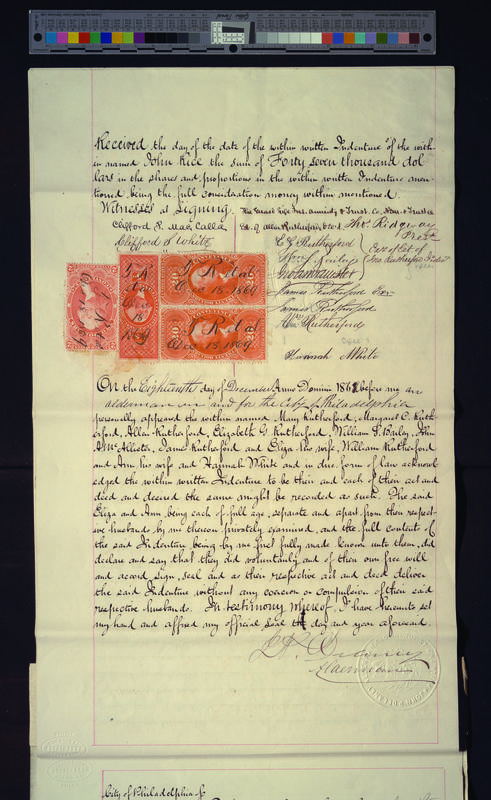 Received the day of the date of the within written Indenture of the with
in named John Rice the sum of Forty seven thousand dol
lars in the shares and proportions in the within written Indenture men
tioned being the full consideration money within mentioned.
Witnesses at Signing.
The Girard Life Ins. Annuity & Trust Co. &
Clifford S. MacCalla
Est. of Allan Rutherford, dec'd
Tho. Ridgway
Prest
Clifford S White
E. G. Rutherford
James Rutherford Exr
James Rutherford
Wm Rutherford
Hannah White
G. R et al
Dec 18 1869
G. R et al
Dec 18 1869
On the Eighteenth day of December Anno Domini 186 before me an
alderman in and for the City of Philadelphia
personally appeared the within named Mary Rutherford, Margaret C. Ruth
erford, Allan Rutherford, Elizabeth G. Rutherford, William S. Baily, John
A. McAllister, James Rutherford and Eliza his wife, William Rutherford
and Ann his wife and Hannah White and in due form of law acknowl
edged the within written Indenture to be their and each of their act and
deed and desired the same might be recorded as such. The said
Eliza and Ann being each of full age, separate and apart from their respect
ive husbands by me thereon privately examined, and the full contents of
the said Indenture being by me first fully made known unto them, did
declare and say that they did voluntarily and of their own free will
and accord sign, seal and as their respective act and deed deliver
the said Indenture without any coercion or compulsion of their said
respective husbands. In testimony whereof, I have hereunto set
my hand and affixed my official seal the day and year aforesaid.
Alderman
City of Philadelphia ss